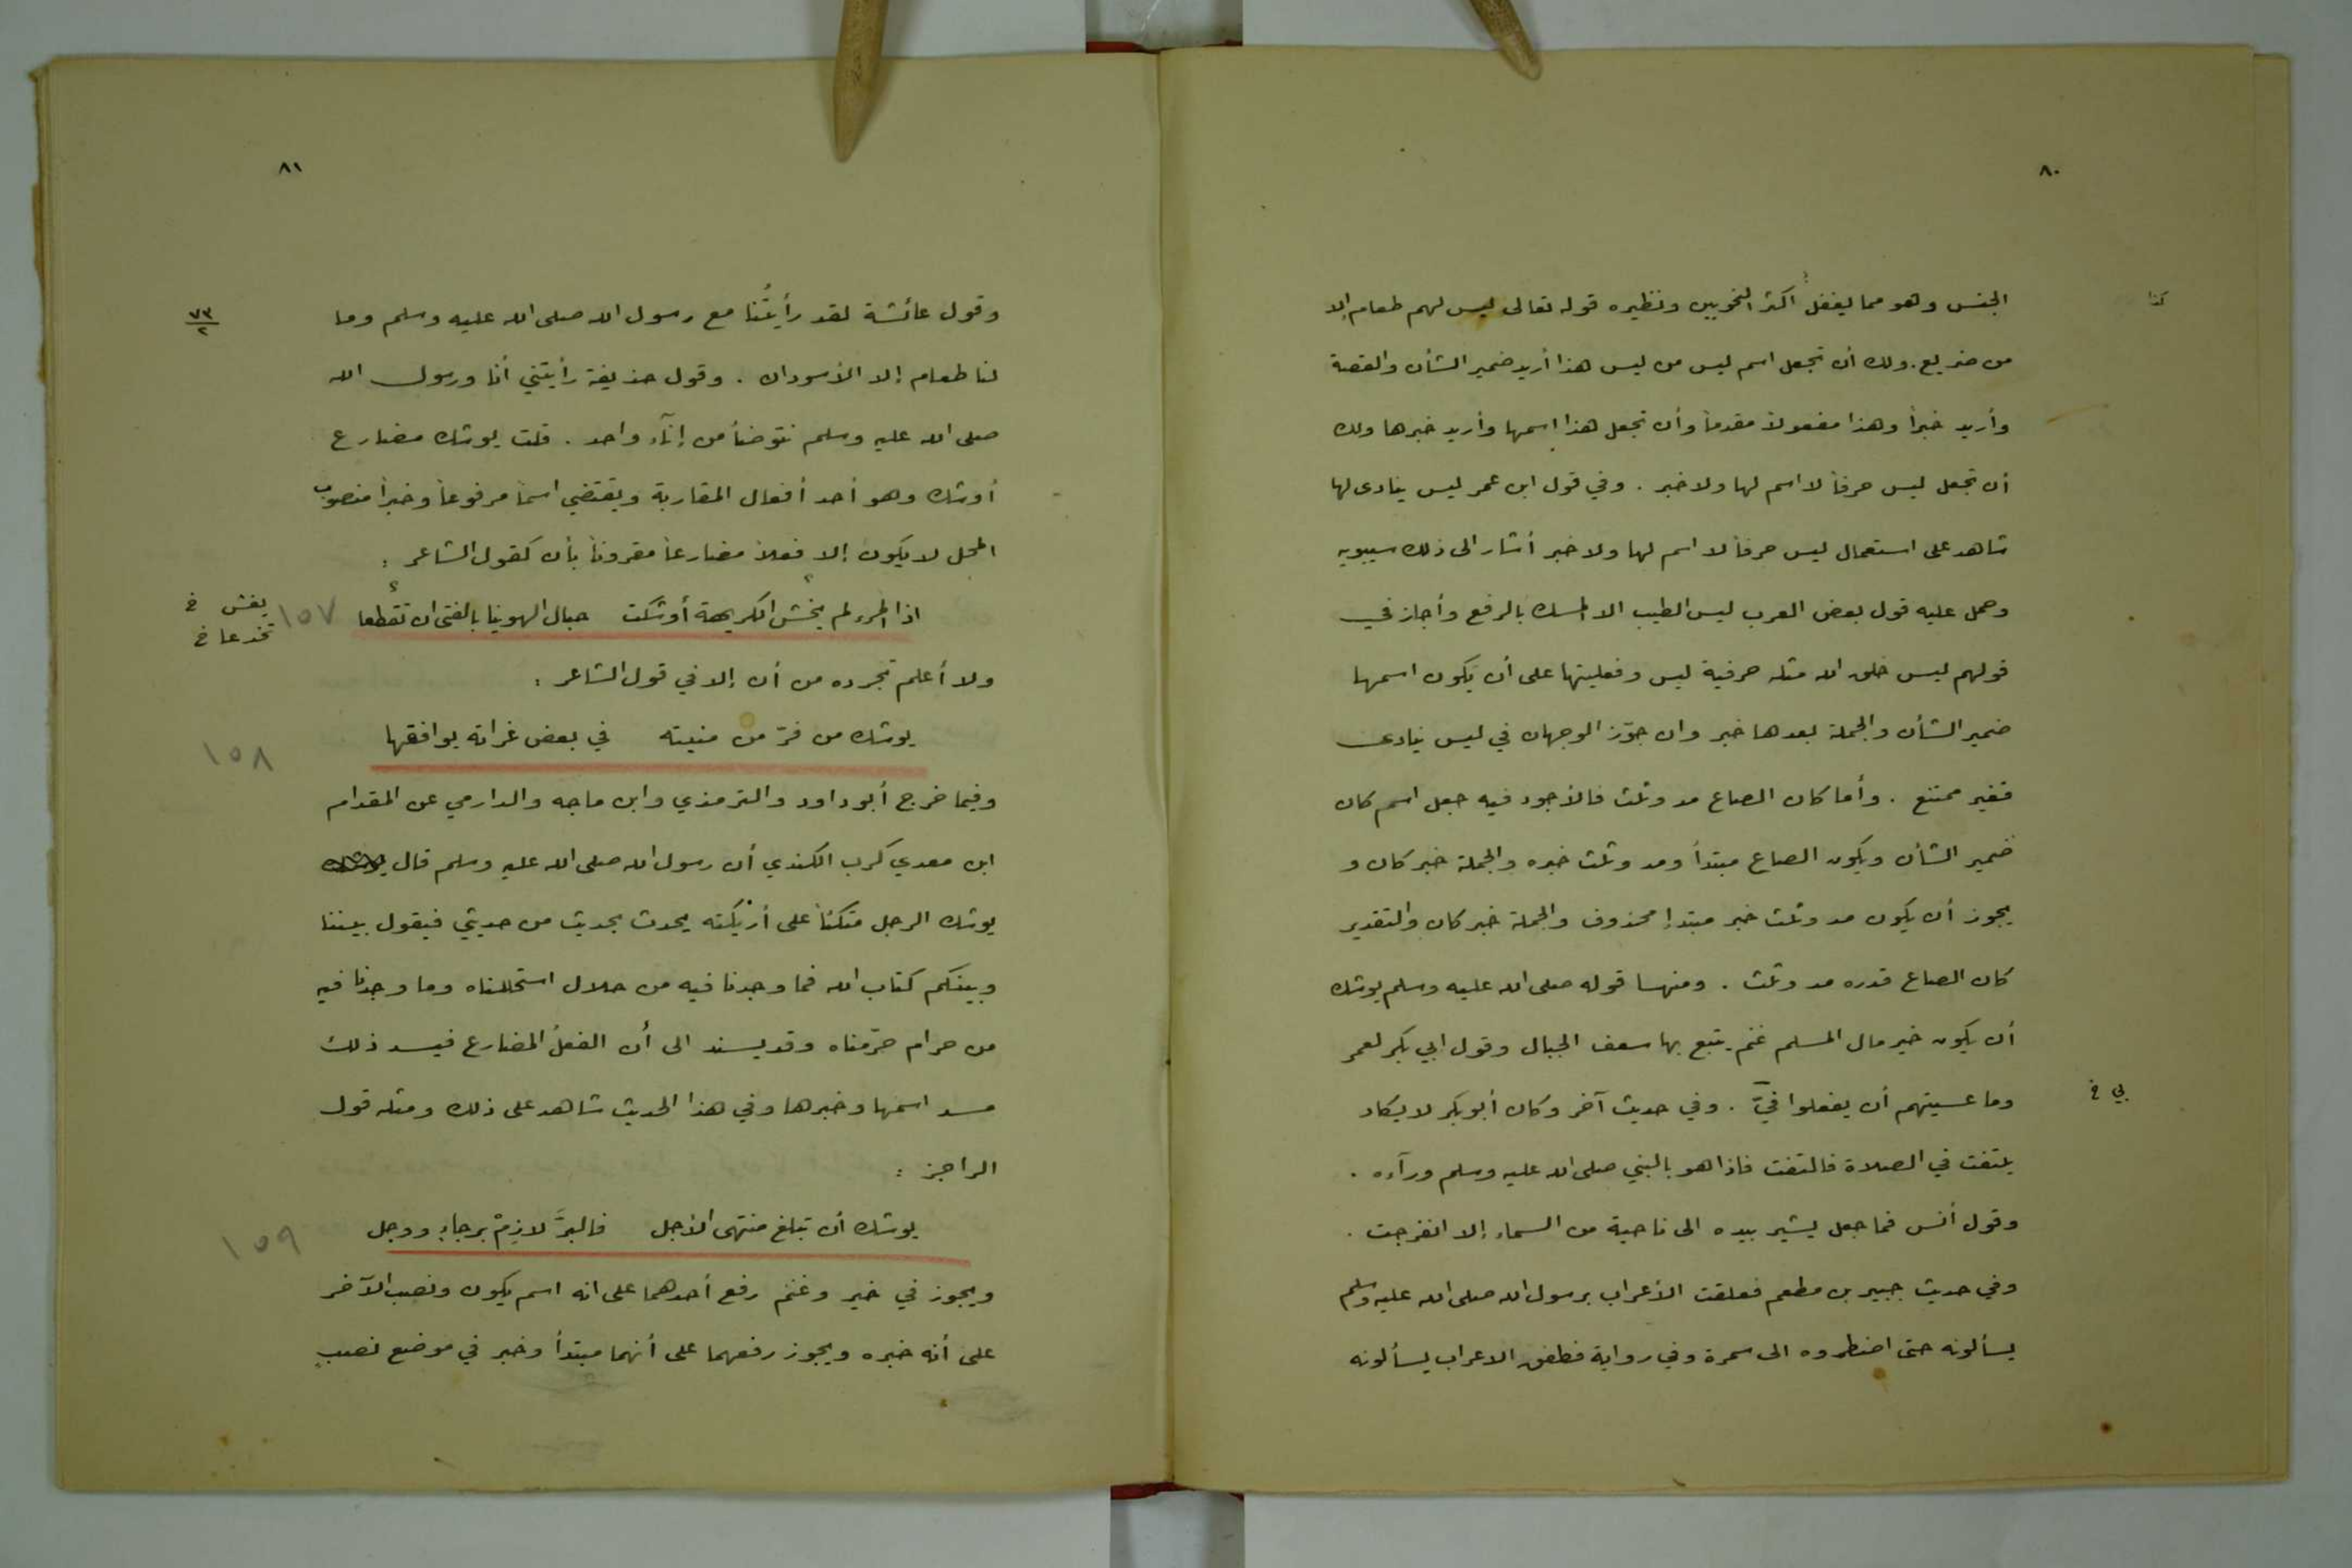 ٨٠
كذا
الجنس وهو مما يغفل أكثر النحويين ونظيره قوله تعالى ليس لهم طعام إلا
من ضريع. ولك أن تجعل اسم ليس من ليس هذا أريد ضمير الشأن والقصة
وأريد خبراً وهذا مفعولاً مقدماً وأن تجعل هذا اسمها وأريد خبرها ولك
أن تجعل ليس حرفاً لا اسم لها ولا خبر . وفي قول ابن عمر ليس ينادى لها
شاهد على استعمال ليس حرفاً لا اسم لها ولا خبر أشار الى ذلك سيبويه
وحمل عليه قول بعض العرب ليس الطيب الا المسك بالرفع وأجاز في
قولهم ليس خلق الله مثله حرفية ليس وفعليتها على أن يكون اسمها
ضمير الشأن والجملة بعدها خبر وان جوّز الوجهان في ليس ينادى
فغير ممتنع . وأما كان الصاع مد وثلث فالأجود فيه جعل اسم كان
ضمير الشأن ويكون الصاع مبتدأ ومد وثلث خبره والجملة خبر كان و
يجوز أن يكون مد وثلث خبر مبتدإ محذوف والجملة خبر كان والتقدير
كان الصاع قدره مد وثلث . ومنها قوله صلى الله عليه وسلم يوشك
أن يكون خير مال المسلم غنم يتبع بها سعف الجبال وقول ابي بكر لعمر
وما عسيتهم أن يفعلوا فيّ . وفي حديث آخر وكان أبو بكر لا يكاد
بي خ
يلتفت في الصلاة فالتفت فاذا هو بالنبي صلى الله عليه وسلم ورآءه .
وقول أنس فما جعل يشير بيده الى ناحية من السماء إلا انفرجت .
وفي حديث جبير بن مطعم فعلقت الأعراب برسول الله صلى الله عليه وسلم
يسألونه حتى اضطروه الى سمرة وفي رواية فطفق الاعراب يسألونه
٨١
وقول عائشة لقد رأيتُنا مع رسول الله صلى الله عليه وسلم وما
٧٣
٢
لنا طعام إلا الأسودان . وقول حذيفة رأيتني أنا ورسول الله
صلى الله عليه وسلم نتوضأ من إنآء واحد . قلت يوشك مضارع
أوشك وهو أحد أفعال المقاربة ويقتضي اسماً مرفوعاً وخبراً منصوب
المحل لا يكون إلا فعلاً مضارعاً مقروناً بأن كقول الشاعر :
اذا المرء لم يخش الكريهة أوشكت حبال الهوينا بالفتى ان تقطعا
١٥٧
يغش خ
تخدعا خ
ولا أعلم تجرده من أن إلا في قول الشاعر :
يوشك من فرّ من منيته في بعض غراته يوافقها
١٥٨
وفيما خرج أبو داود والترمذي وابن ماجه والدارمي عن المقدام
ابن معدي كرب الكندي أن رسول الله صلى الله عليه وسلم قال
يوشك الرجل متكئاً على أريكته يحدث بحديث من حديثي فيقول بيننا
وبينكم كتاب الله فما وجدنا فيه من حلال استحللناه وما وجدنا فيه
من حرام حرّمناه وقد يسند الى أن الفعل المضارع فيسد ذلك
مسد اسمها وخبرها وفي هذا الحديث شاهد على ذلك ومثله قول
الراجز :
يوشك أن تبلغ منتهى الأجل فالبرَّ لازِمْ برجاءٍ ووجل
١٥٩
ويجوز في خير وغنم رفع أحدهما على انه اسم يكون ونصب الآخر
على أنه خبره ويجوز رفعهما على أنهما مبتدأ وخبر في موضع نصبٍ